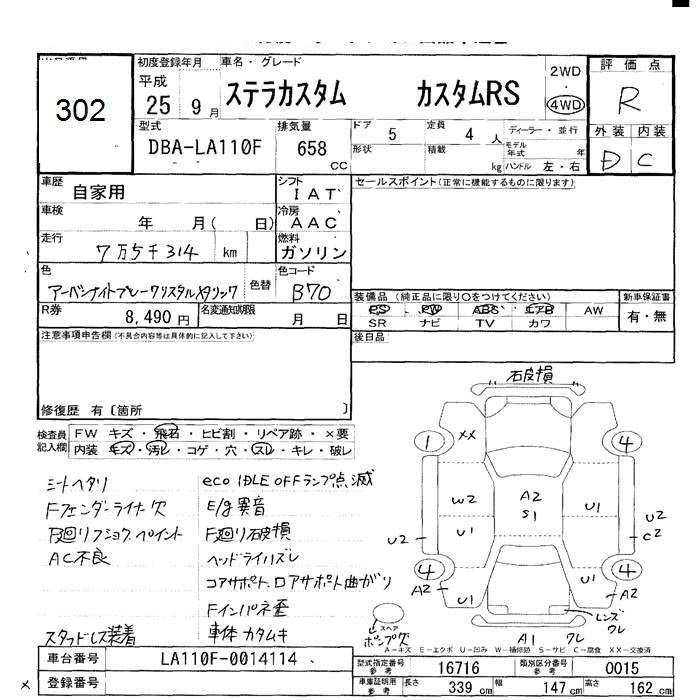 302
初度登録年月
平成
25 9月
車名・グレード
ステラカスタム カスタムRS
2WD
・
4WD
評価点
R
外装 内装
D C
型式
DBA-LA110F
排気量
658 CC
ドア 5
定員 4 人
形状
積載 kg
ディーラー・並行
モデル年式 年
ハンドル 左・右
車歴 自家用
シフト IAT
車検 年 月( 日)
冷房 AAC
走行 7万5千314 km
燃料 ガソリン
色 アーバンナイトブルークリスタルメタリック
色替
色コード B70
R券 8,490円
名変通知期限 月 日
セールスポイント(正常に機能するものに限ります)
装備品 (純正品に限り○をつけてください)
PS PW ABS エアB AW
SR ナビ TV カワ
新車保証書
有・無
後日品
注意事項申告欄(不具合内容等は具体的に記入して下さい)
修復歴 有〔箇所 〕
検査員記入欄
FW キズ・飛石・ヒビ割・リペア跡・×要
内装 キズ・汚レ・コゲ・穴・スレ・キレ・破レ
シートヘタリ
Fフェンダーライナー欠
F廻リフショク、ペイント
AC不良
スタッドレス装着
eco IDLE OFFランプ点滅
E/g異音
F廻リ石破損
ヘッドライハズレ
コアサポート、ロアサポート曲がり
Fインパネ歪
車体カタムキ
石皮損
1 XX 4
W2 A2 S1 U1
U2 U1 U2 C2
4 A2 U1 U1 4 A2
スペア
ポンプ欠
A1 ワレ
レンズワレ
A−キズ E−エクボ U−凹み W−補修跡 S−サビ C−腐食 XX−交換済
車台番号 LA110F-0014114
登録番号
型式指定番号 参考 16716
類別区分番号 参考 0015
車庫証明用 参考 長さ 339 cm 幅 147 cm 高さ 162 cm